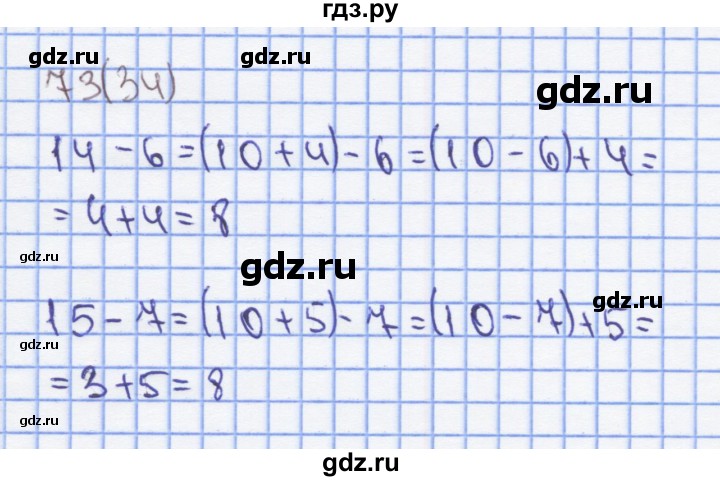 гдз.ру
gdz.ru gdz.ru
73(34)
gdz.ru
14-6=(10+4)-6=(10-6)+4=
=4+4=8
gdz.ru
gdz.ru
gdz.ru
15-7=(10+5)-7=(10-7)+5=
gdz.ru
gdz.ru
=3+5=8
gdz.ru
gdz.ru
gdz.ru